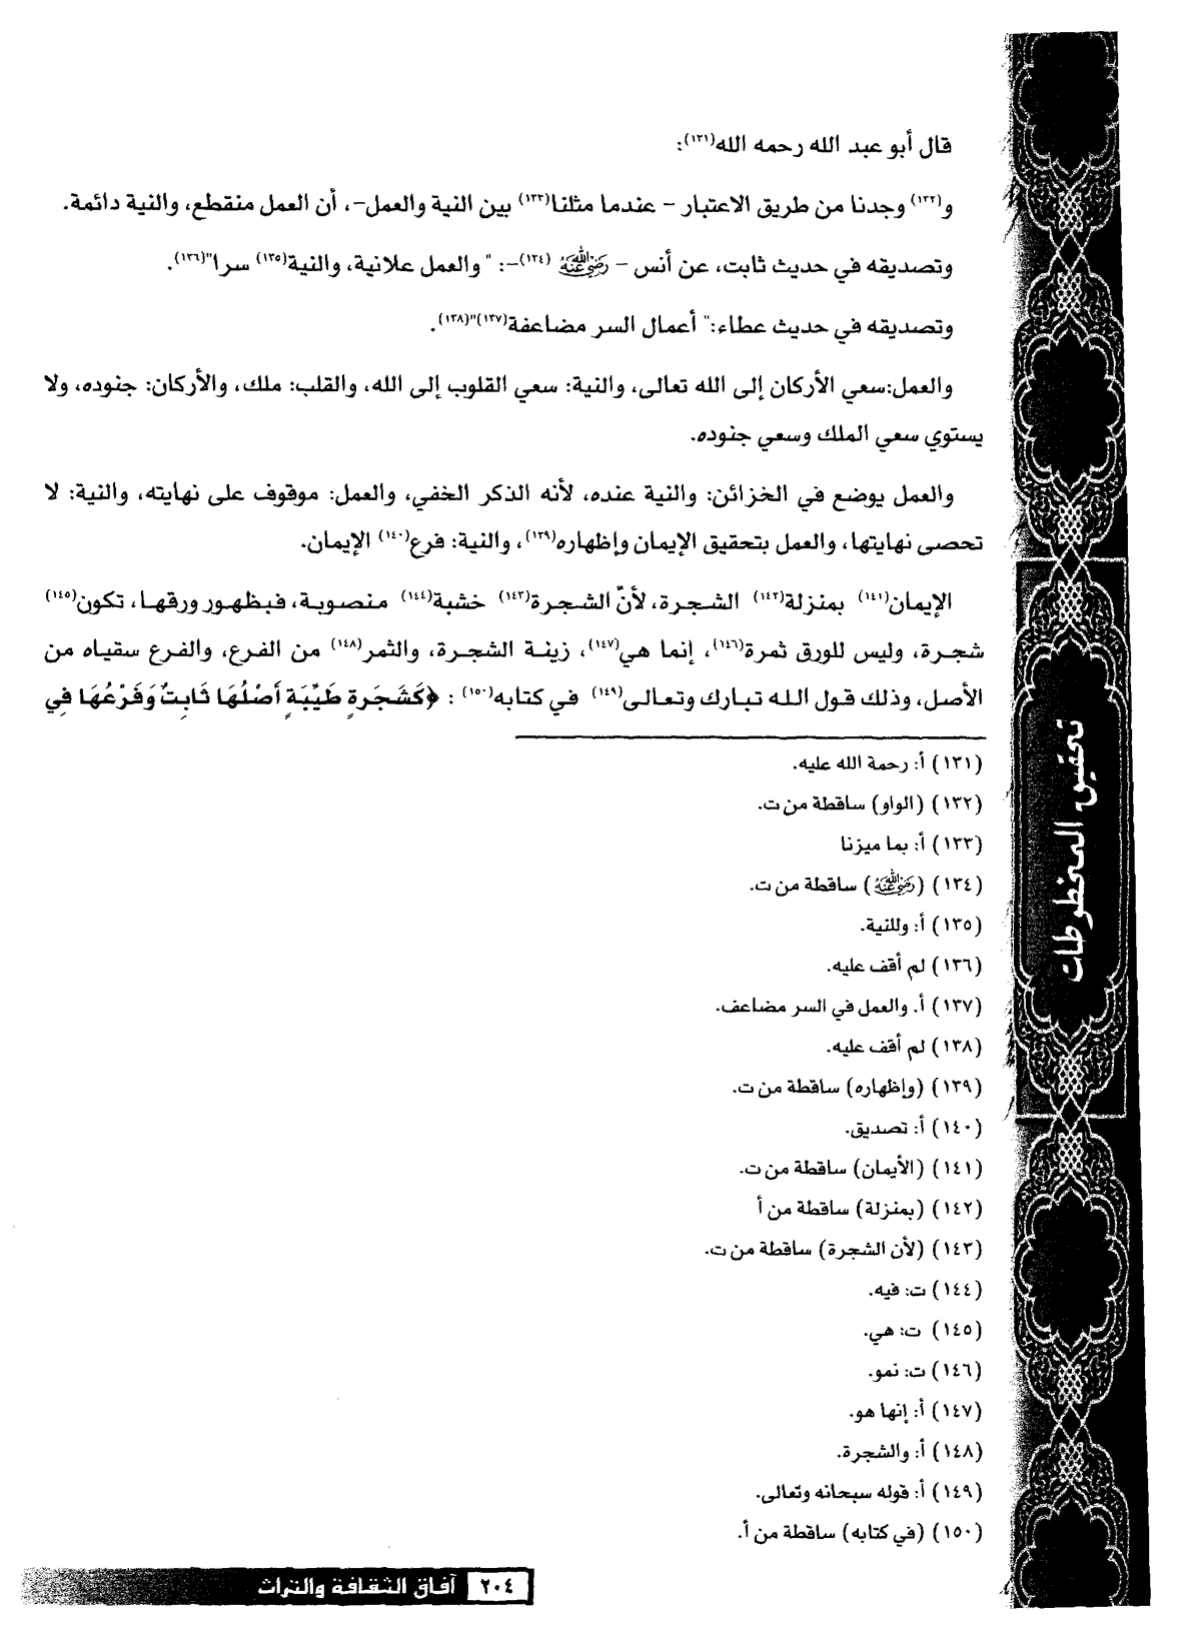 قال أبو عبد الله رحمه الله(١٣١):
و(١٣٢) وجدنا من طريق الاعتبار – عندما مثلنا(١٣٣) بين النية والعمل–، أن العمل منقطع، والنية دائمة.
وتصديقه في حديث ثابت، عن أنس – رضي الله عنه (١٣٤)–: "والعمل علانية، والنية(١٣٥) سرا"(١٣٦).
وتصديقه في حديث عطاء:" أعمال السر مضاعفة(١٣٧)"(١٣٨).
والعمل:سعي الأركان إلى الله تعالى، والنية: سعي القلوب إلى الله، والقلب: ملك، والأركان: جنوده، ولا
يستوي سعي الملك وسعي جنوده.
والعمل يوضع في الخزائن: والنية عنده، لأنه الذكر الخفي، والعمل: موقوف على نهايته، والنية: لا
تحصى نهايتها، والعمل بتحقيق الإيمان وإظهاره(١٣٩)، والنية: فرع(١٤٠) الإيمان.
الإيمان(١٤١) بمنزلة(١٤٢) الشجرة، لأنّ الشجرة(١٤٣) خشبة(١٤٤) منصوبة، فبظهور ورقها، تكون(١٤٥)
شجرة، وليس للورق ثمرة(١٤٦)، إنما هي(١٤٧)، زينة الشجرة، والثمر(١٤٨) من الفرع، والفرع سقياه من
الأصل، وذلك قول الله تبارك وتعالى(١٤٩) في كتابه(١٥٠) : ﴿كَشَجَرةٍ طَيِّبَةٍ أَصْلُهَا ثَابِتٌ وَفَرْعُهَا فِي
(١٣١) أ: رحمة الله عليه.
(١٣٢) (الواو) ساقطة من ت.
(١٣٣) أ: بما ميزنا
(١٣٤) (رضي الله عنه) ساقطة من ت.
(١٣٥) أ: وللنية.
(١٣٦) لم أقف عليه.
(١٣٧) أ. والعمل في السر مضاعف.
(١٣٨) لم أقف عليه.
(١٣٩) (وإظهاره) ساقطة من ت.
(١٤٠) أ: تصديق.
(١٤١) (الأيمان) ساقطة من ت.
(١٤٢) (بمنزلة) ساقطة من أ
(١٤٣) (لأن الشجرة) ساقطة من ت.
(١٤٤) ت: فيه.
(١٤٥) ت: هي.
(١٤٦) ت: نمو.
(١٤٧) أ: إنها هو.
(١٤٨) أ: والشجرة.
(١٤٩) أ: قوله سبحانه وتعالى.
(١٥٠) (في كتابه) ساقطة من أ.
تحقيق المخطوطات
٢٠٤ آفاق الثقافة والتراث